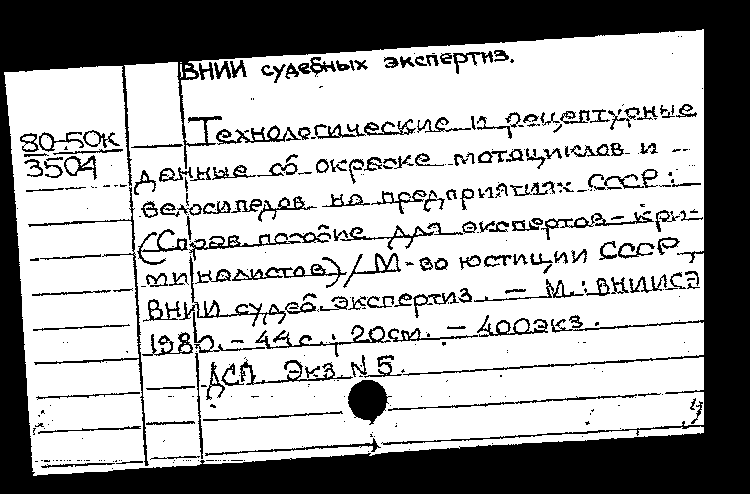 ВНИИ судебных экспертиз.
80-50к
3504
Технологические и рецептурные
данные об окраске мотоциклов и
велосипедов на предприятиях СССР:
(Справ. пособие для экспертов-кри-
миналистов) / М-во юстиции СССР,
ВНИИ судеб. экспертиз. — М.: ВНИИСЭ
1980. - 44 с.; 20 см. — 400 экз.
ДСП. Экз. N 5.